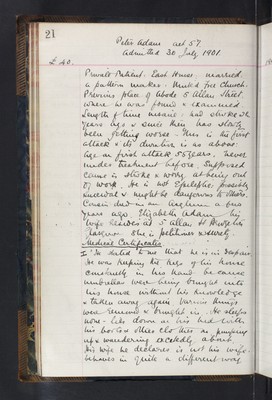 21
Peter Adam aet 57
Admitted 30 July 1901
£40.
Private Patient. East House. married
a pattern maker. United Free Church.
Previous place of abode 5 Allan Street.
where he was found & examined
Length of time insane. had stroke 2½
years ago & since then has slowly
been getting worse. This is the first
attack & its duration is as above.
Age on first attack 55 years. never
under treatment before. Supposed
cause is stroke & worry at being out
of work. He is not Epileptic. possibly
suicidal & might be dangerous to others.
Cousin died in an asylum a few
years ago. Elizabeth Adam his
wife resides at 5 Allan St
Glasgow. She is petitioner
Medical Certificates
I. He stated to me that he is in despair
He was keeping the keys of his house
in his hand because
umbrellas were being brought into
his house without his knowledge
& taken away again. Various things
were removed & brought in. He sleeps
none - lies down on his bed with
his boots & other clothes on jumping
up & wandering excitedly about.
His wife he declares is not his wife.
behaves in quite a different way